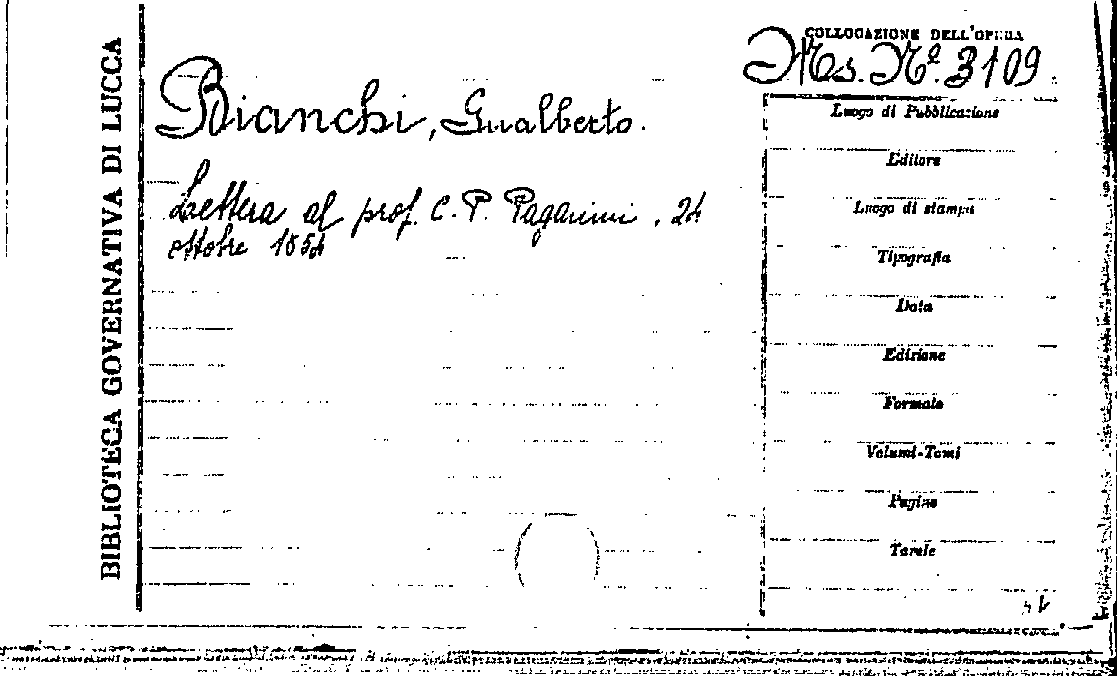 BIBLIOTECA GOVERNATIVA DI LUCCA
COLLOCAZIONE DELL'OPERA
Ms. Nº. 3109.
Bianchi, Gualberto.
Lettera al prof. C. P. Paganini, 24
ottobre 1854
Luogo di Pubblicazione
Editore
Luogo di stampa
Tipografia
Data
Edizione
Formato
Volumi-Tomi
Pagine
Tavole